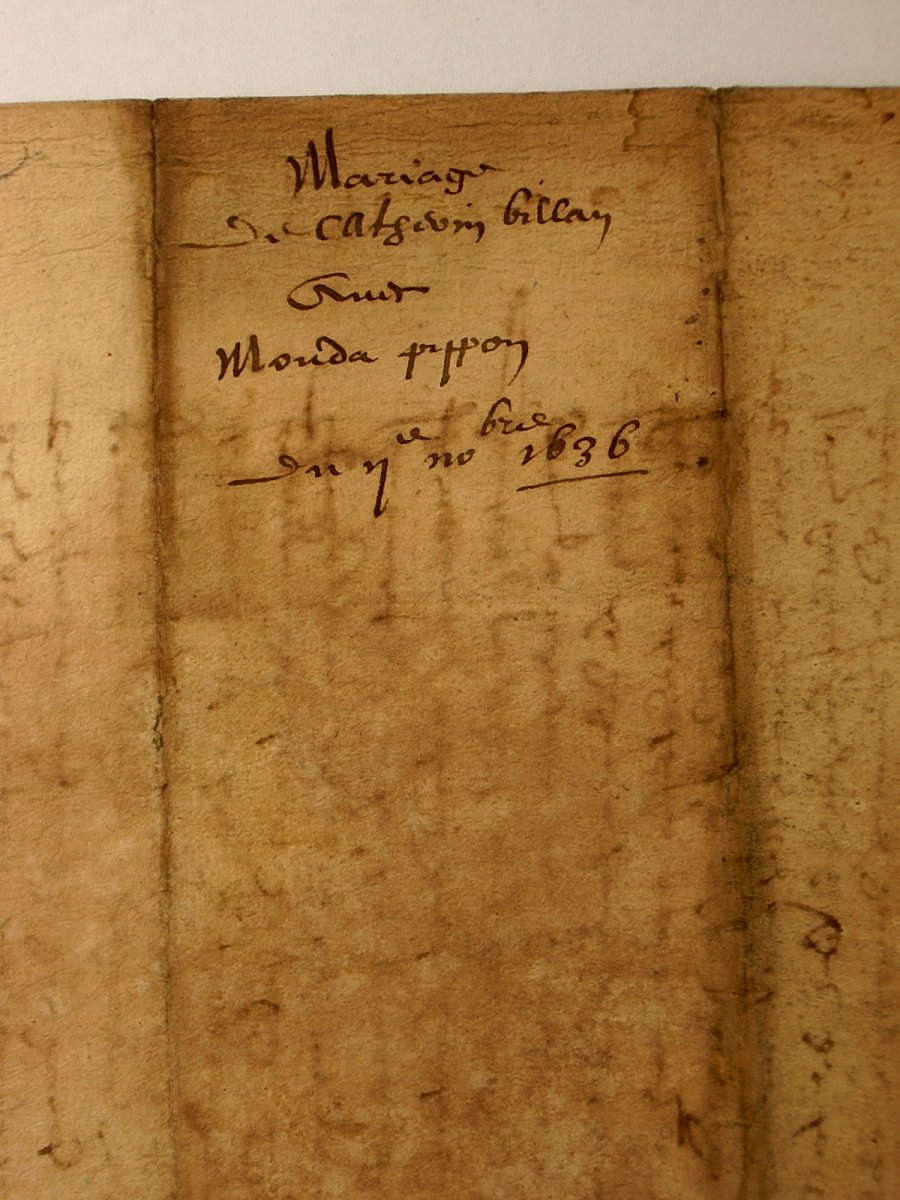 Mariage
de Cathevin billan
Avec
Monda pippon
du 11e nobre 1636